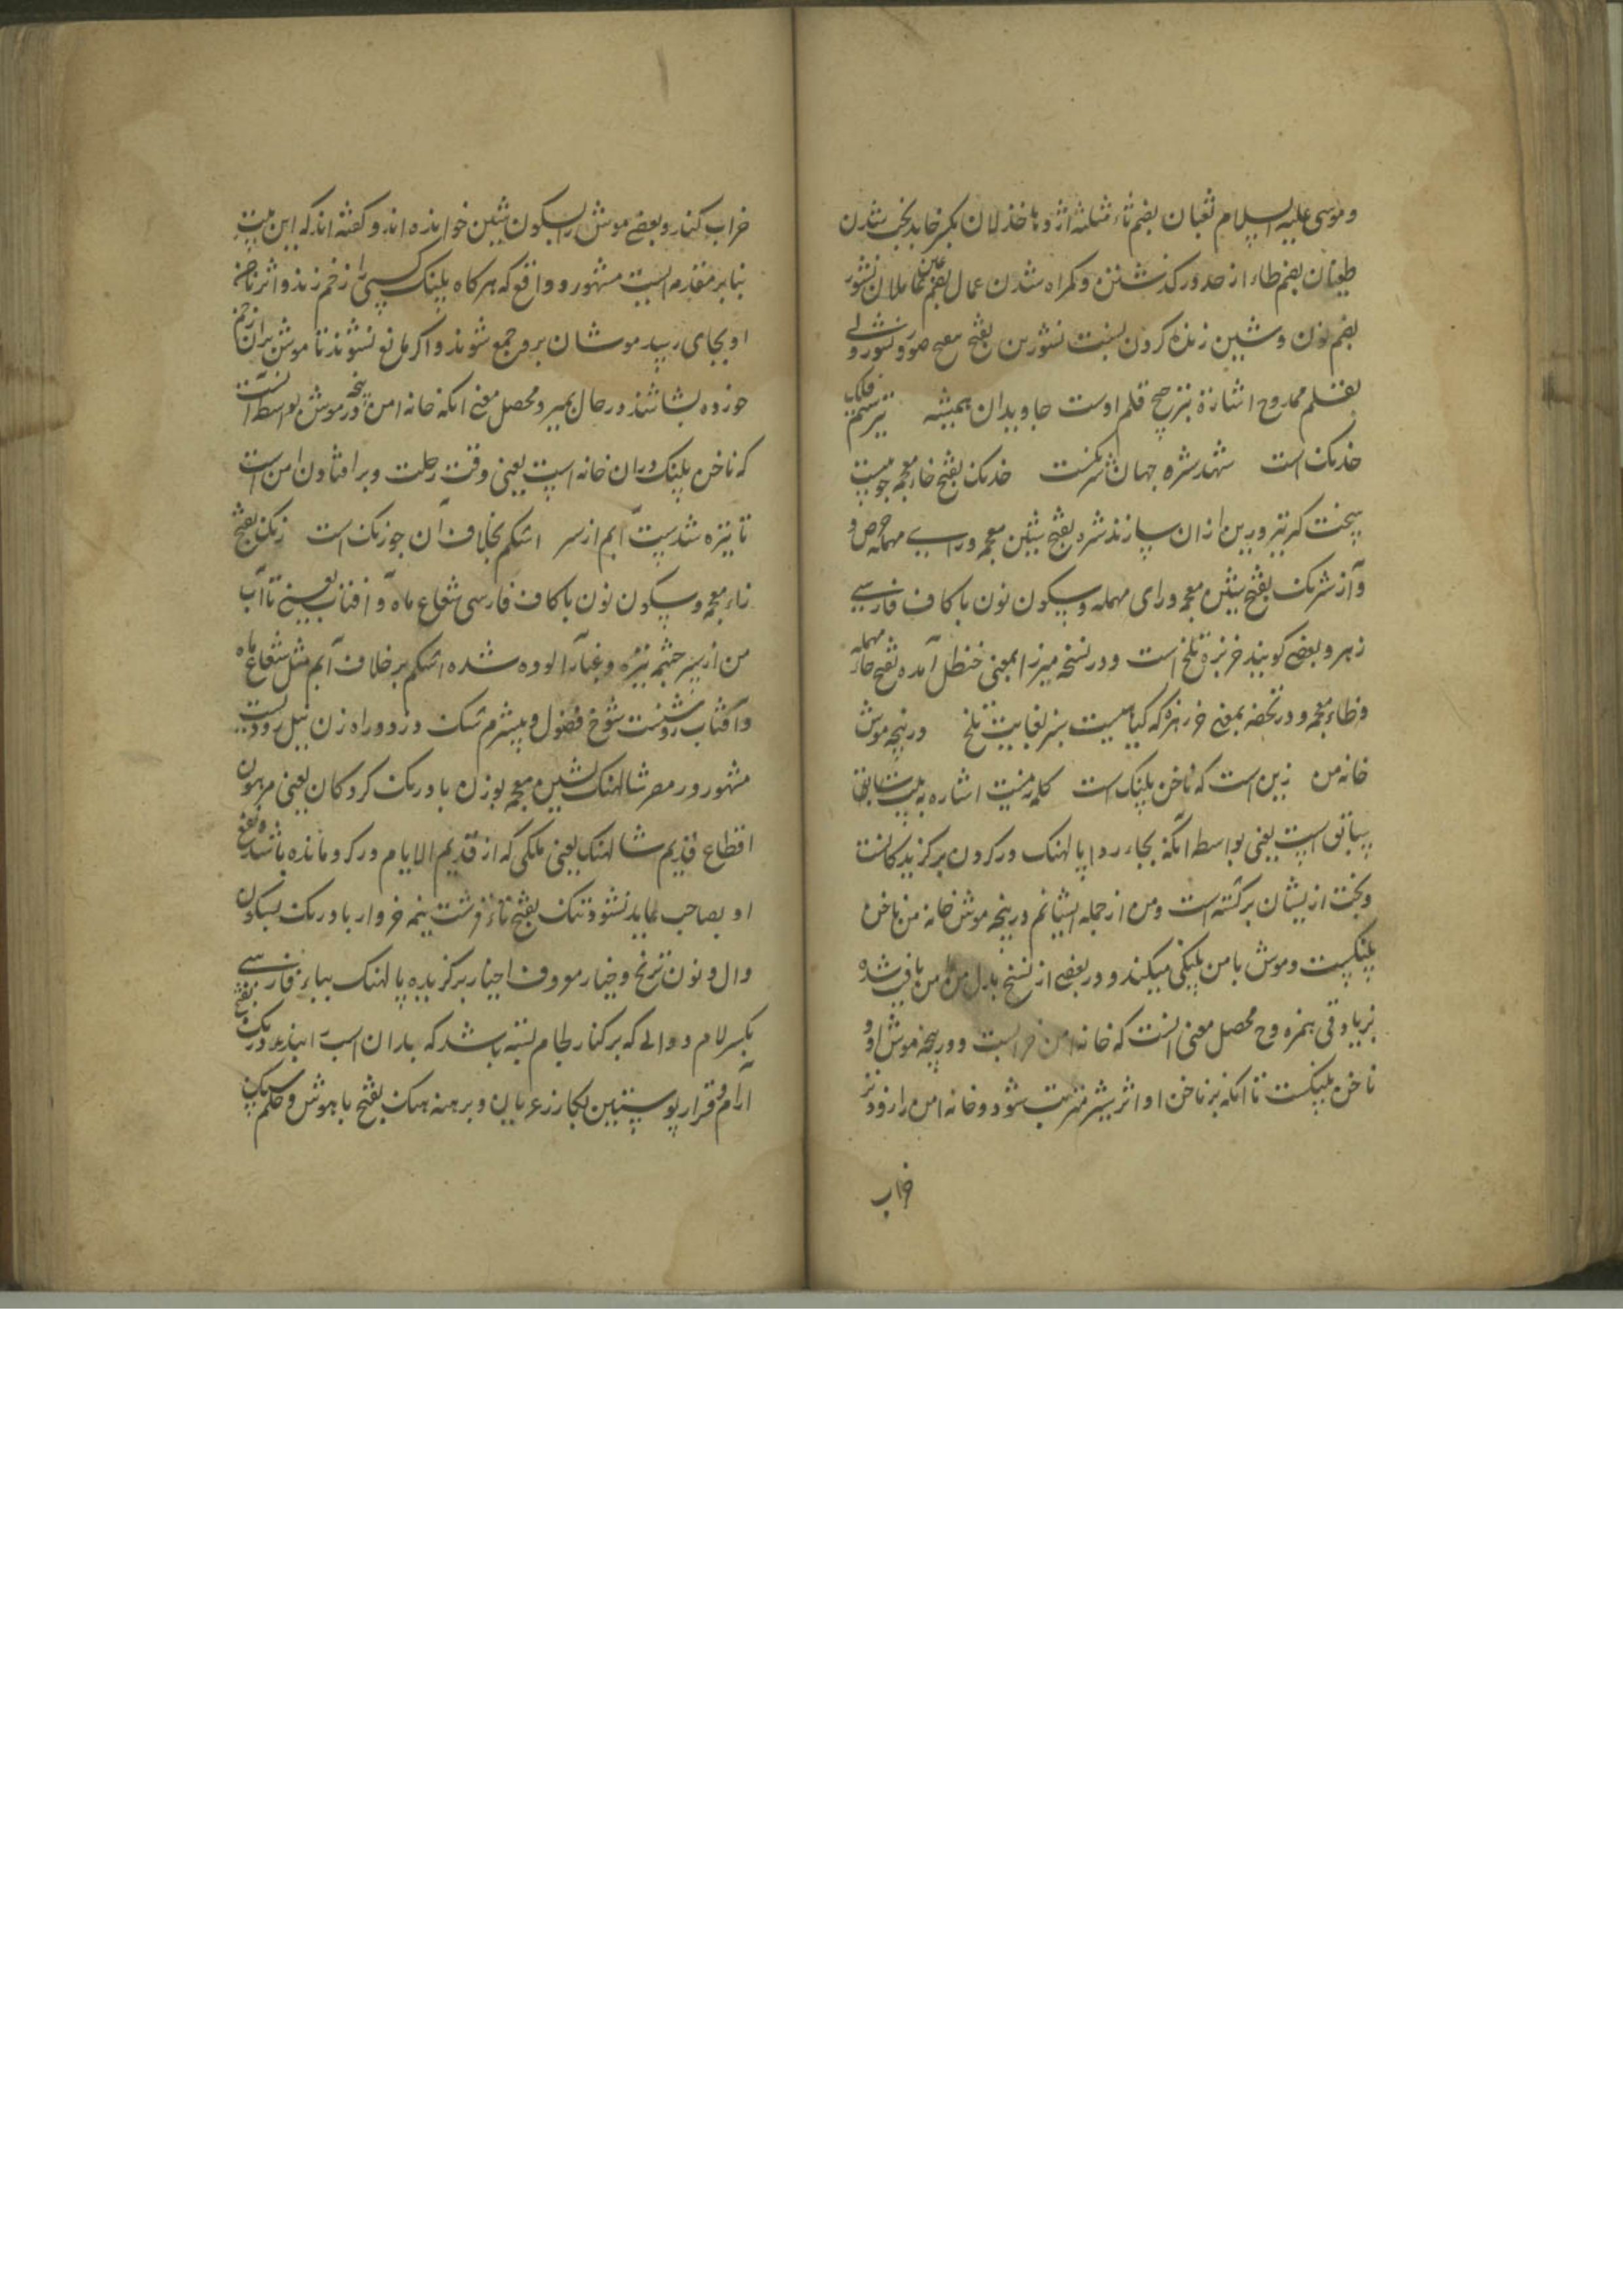 و موسی علیه السلام ثعبان بضم ثاء مثلثه اژدها خذلان بکسر خا بدبخت شدن
طغیان بضم طاء از حد در کذشتن و کمراه شدن عمال بضم عین عاملان نشور
بضم نون و شین زنده کردن نسبت نشور بن بفتح معج صور و نشور و
بقلم ممدوح اشارة بترجیح قلم اوست جاویدان همیشه تیر سهم فلک
خدنک است شهد شره جهان شرنکست خدنک بفتح خاء معجمه چوبیست
سخت که تیر و زین از ان سازند شره بفتح شین معجمه و رای مهمله حرص و
و آز شرنک بفتح شین معجمه و رای مهمله و سکون نون با کاف فارسی
زهر و بعضی کویند خربزهٔ تلخ است و در نسخه میرزا بمعنی حنظل آمده بفتح حاء مهمله
و ظاء معجمه و در تحفه بمعنی خرزهره که کیاهیست سبز بغایت تلخ در پنجه موش
خانه من زین است که ناخن پلنک است کلمه زینست اشاره به بیت سابق
سابق است یعنی بواسطه آنکه بجاء ردا پالهنک در کردن برکزیدکانست
و بخت ازیشان برکشته است و من از جمله ایشانم در پنجه موش خانه من ناخن
پلنکست و موش با من پلنکی میکند و در بعضی از نسخ بدل من امن یافت شده
بزیادتی همزه و محصل معنی آنست که خانه امن خرابست و در پنجه موش او و
ناخن پلنکست تا آنکه بر ناخن او اثر بیشتر مترتب شود و خانه امن را زودتر
خراب
خراب کند و بعضی موش را بسکون شین خوانده اند و کفته اند که این بیت
بنابر مقدمه ایست مشهور و واقع که هر کاه پلنک کسی را زخم زند و اثر ناخن
او بجای رسد موشان برو جمع شوند و اکر مانع نشوند تا موش بران زخم
خورده بشاشد در حال بمیرد و محصل معنی آنکه خانه امن در پنجه موش بواسطه آنست
که ناخن پلنک در ان خانه است یعنی وقت رحلت و برافتادن امن است
تا تیره شدست آبم از سر اشکم بخلاف آن چو زنک است زنک بفتح
زاء معجمه و سکون نون با کاف فارسی شعاع ماه و آفتاب یعنی تا آب
من از سر چشم تیره و غبار آلوده شده اشکم بر خلاف آبم مثل شعاع ماه
و آفتاب روشنست شوخ فضول و بیشرم شنک دزد و راه زن نیل رودیست
مشهور در مصر شالهنک بشین معجمه بوزن بادرنک کروکان یعنی مرهون
اقطاع قدیم شالهنک یعنی ملکی که از قدیم الایام در کرو مانده باشد و نفع
او بصاحب عاید نشود تنک بفتح تاء قرشت نیمه خروار بادرنک بسکون
دال و نون ترنج و خیار معروف اختیار برکزیده پالهنک بباء فارسی بفتح
بکسر لام دوالی که بر کنار لجام بسته باشد که بدان اسب ... درنک
آرام و قرار پوستین بکازر عریان و برهنه هنک بفتح ها هوش و حلم سبک